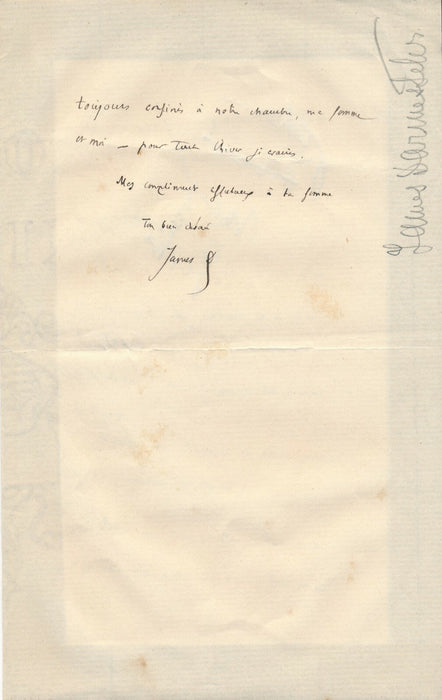 toujours confinés à notre chambre, ma femme
et moi — pour tout l'hiver je crains.
Mes compliments affectueux à ta femme
Ton bien dévoué
James
James Darmesteter